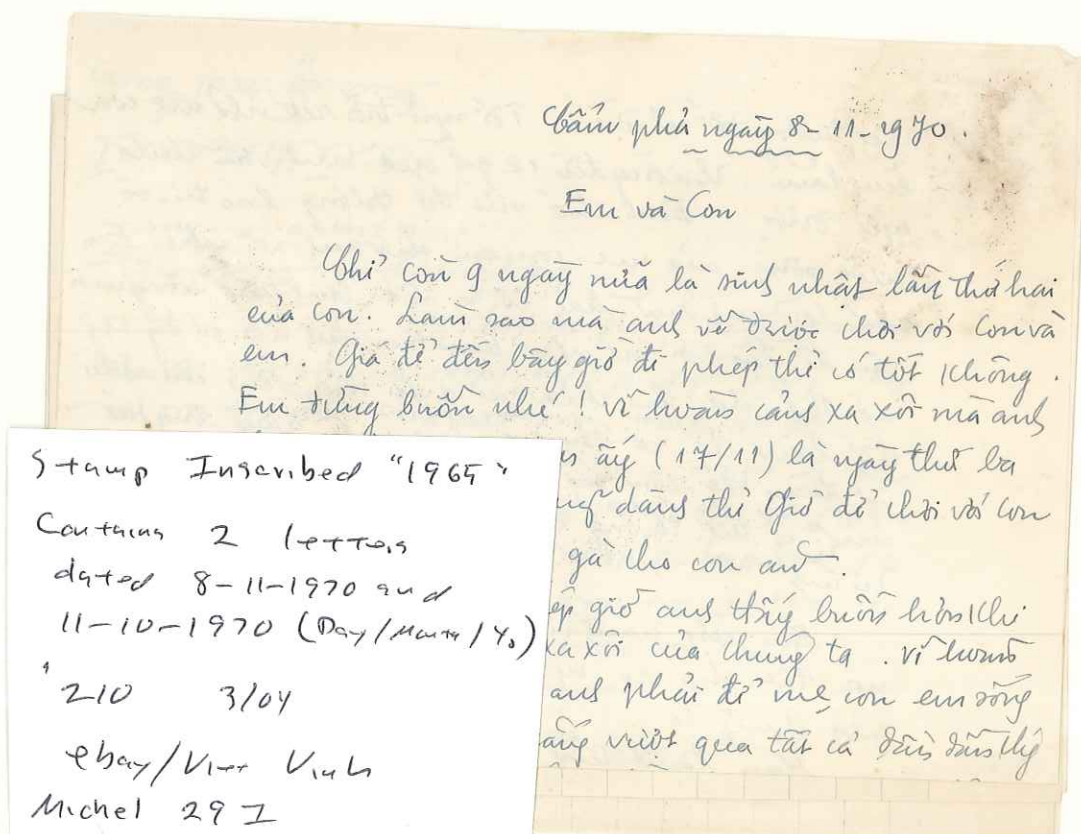 Cẩm phả ngày 8-11-1970.
Em và Con
Chỉ còn 9 ngày nữa là sinh nhật lần thứ hai
của con. Làm sao mà anh về được chơi với Con và
em. Giá để đến bây giờ đi phép thì có tốt không.
Em đừng buồn nhé! vì hoàn cảnh xa xôi mà anh
ấy (17/11) là ngày thứ ba
dành thì Giờ để chơi với con
gà cho con
giờ anh thấy buồn hơn khi
xa xôi của chúng ta. vì hoàn
anh phải để mẹ con em sống
vượt qua tất cả
Stamp Inscribed "1965"
Contains 2 letters
dated 8-11-1970 and
11-10-1970 (Day/Month/Yr)
210 3/04
ebay/Viet Vinh
Michel 29 I